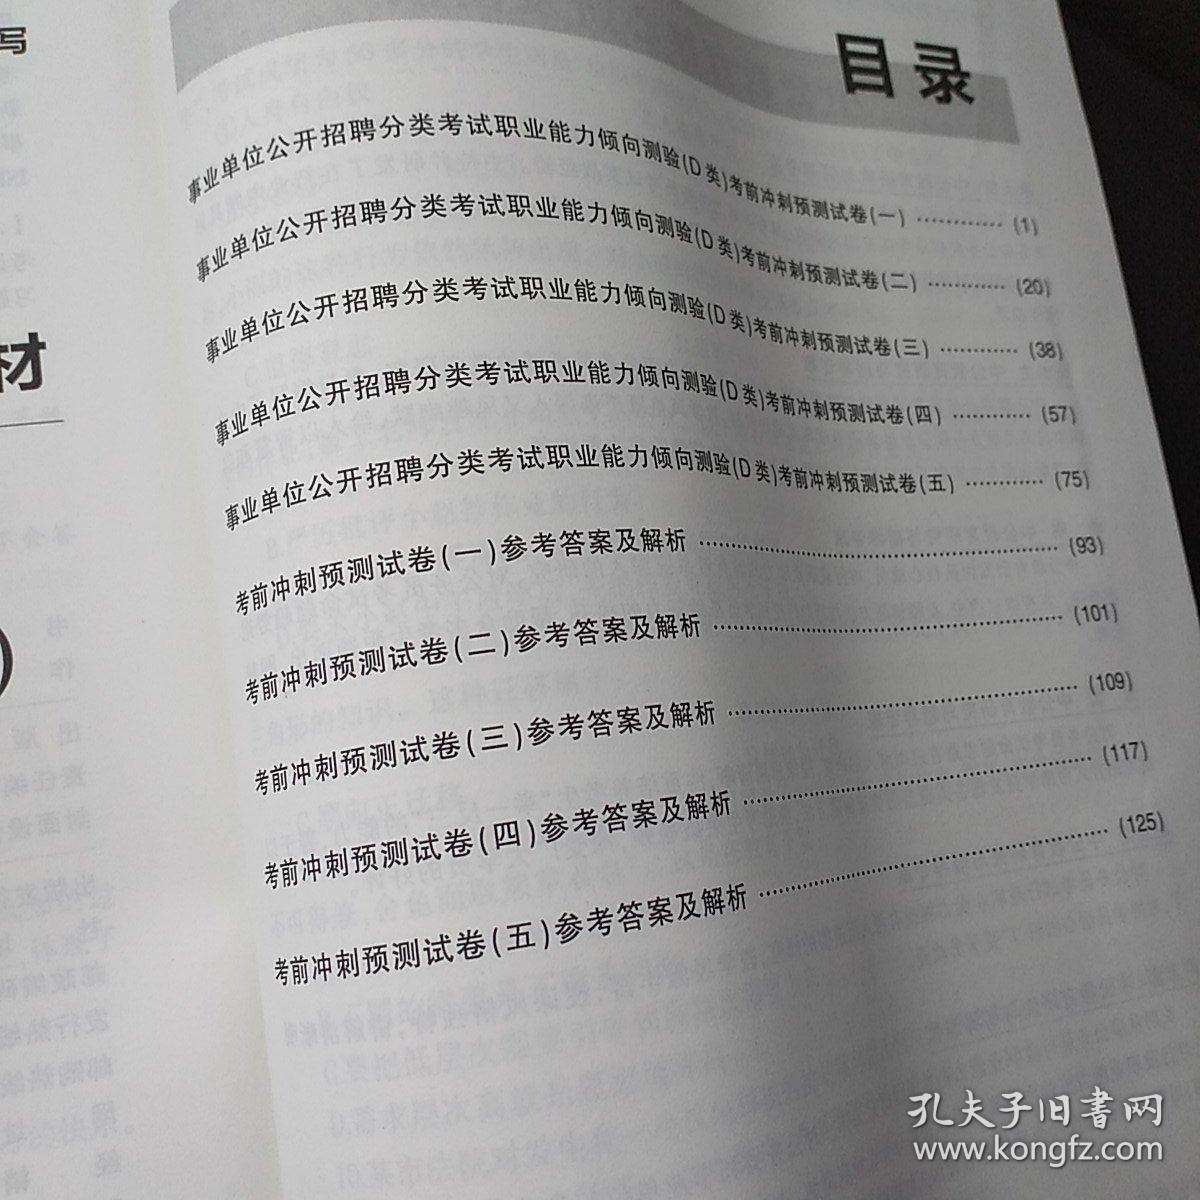 写
材
目录
事业单位公开招聘分类考试职业能力倾向测验(D类)考前冲刺预测试卷(一) ············ (1)
事业单位公开招聘分类考试职业能力倾向测验(D类)考前冲刺预测试卷(二) ············ (20)
事业单位公开招聘分类考试职业能力倾向测验(D类)考前冲刺预测试卷(三) ············ (38)
事业单位公开招聘分类考试职业能力倾向测验(D类)考前冲刺预测试卷(四) ············ (57)
事业单位公开招聘分类考试职业能力倾向测验(D类)考前冲刺预测试卷(五) ············ (75)
考前冲刺预测试卷(一)参考答案及解析 ············ (93)
考前冲刺预测试卷(二)参考答案及解析 ············ (101)
考前冲刺预测试卷(三)参考答案及解析 ············ (109)
考前冲刺预测试卷(四)参考答案及解析 ············ (117)
考前冲刺预测试卷(五)参考答案及解析 ············ (125)
孔夫子旧书网
www.kongfz.com